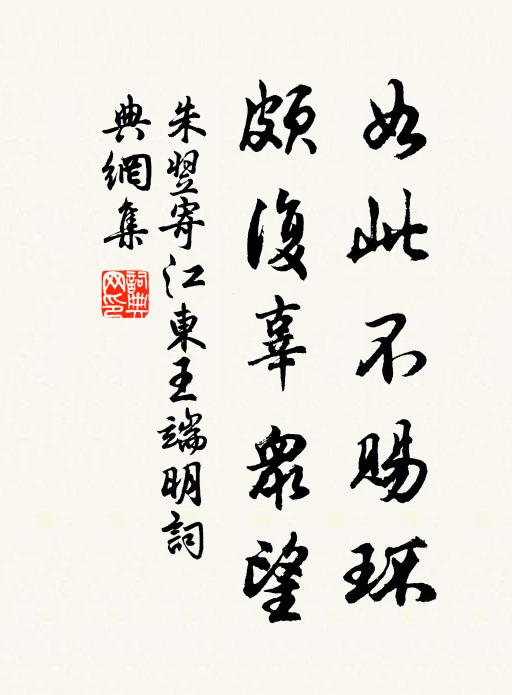 如此不賜環
頗復辜衆望
朱翌寄江東王端明詞
典網集
詞典網印